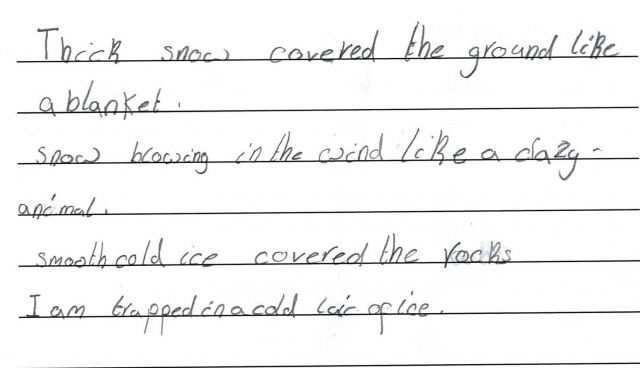 Thick snow covered the ground like
a blanket.
snow browsing in the wind like a clazy-
animal.
smooth cold ice covered the rocks
I am trapped in a cold lair of ice.